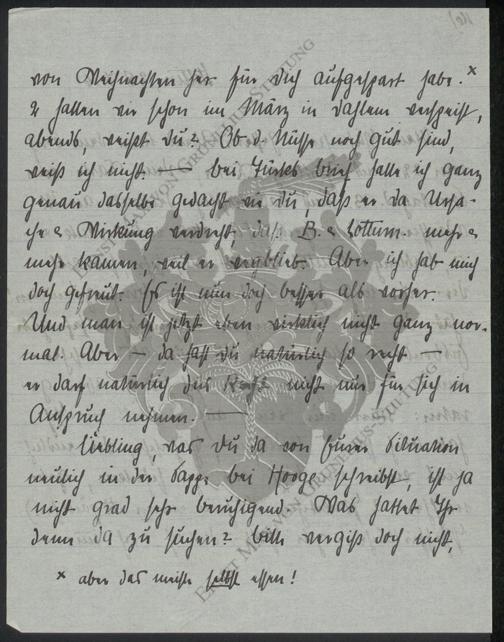 von Weihnachten her für Dich aufgespart habe. x
2 hatten wir schon im März in Dahlem verspeist,
abends, weißt du? Ob d. Nüsse noch gut sind,
weiß ich nicht — bei Türks buch hatte ich ganz
genau dasselbe gedacht wie du, daß er da Ursa-
che & Wirkung verdreht, daß B. & Lottum. mehr &
mehr kamen, weil er wegblieb. Aber ich hab mich
doch gefreut. Es ist nun doch besser als vorher.
Und man ist jetzt eben wirklich nicht ganz nor-
mal. Aber — da hast du natürlich so recht —
er darf natürlich das Recht nicht nur für sich in
Anspruch nehmen. —
Liebling was du da von Eurer Situation
neulich in der Sappe bei Hooge schreibst, ist ja
nicht grad sehr beruhigend. Was hattet Ihr
denn da zu suchen? bitte vergiß doch nicht,
x aber das meiste selbst essen!
ERNST MORITZ VON GRÜNELIUS-STIFTUNG